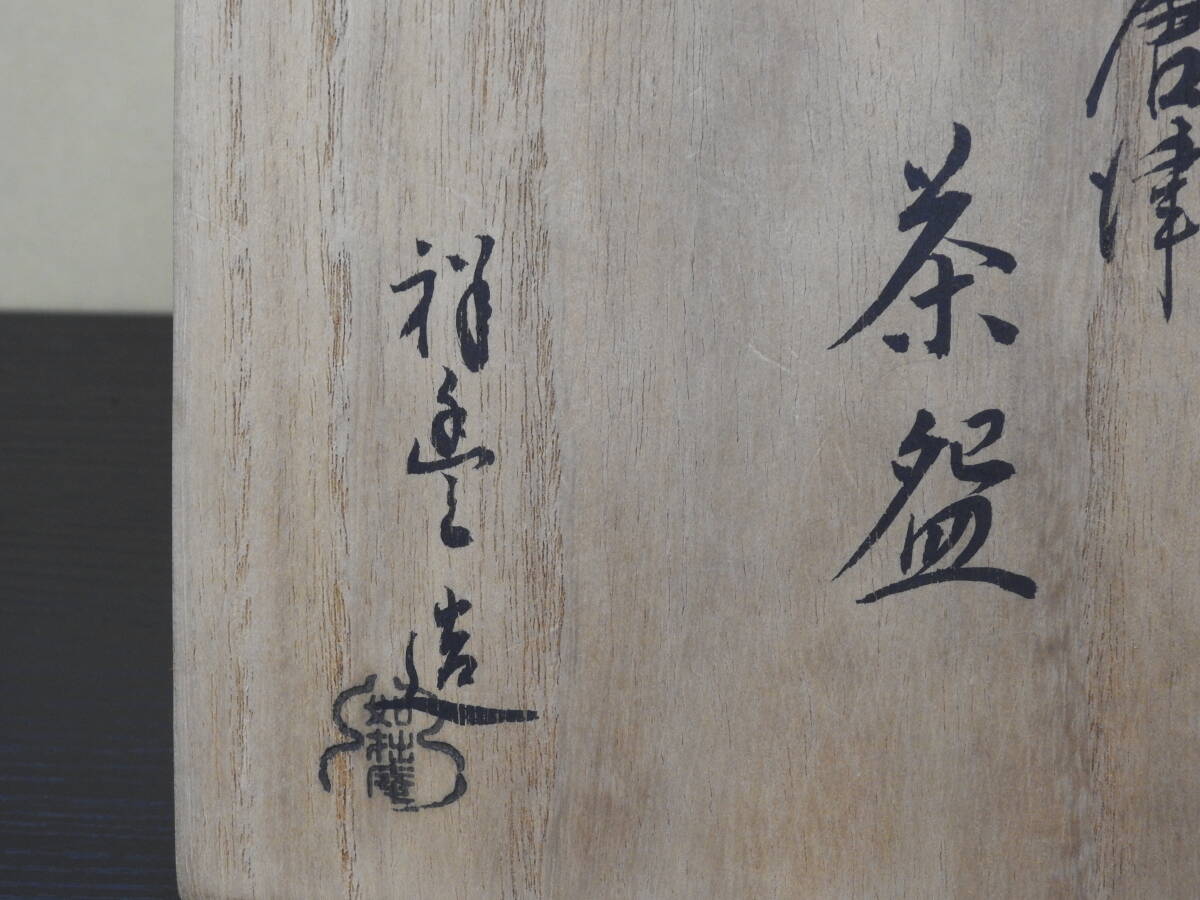 唐津
茶盌
祥豊造
如拙庵